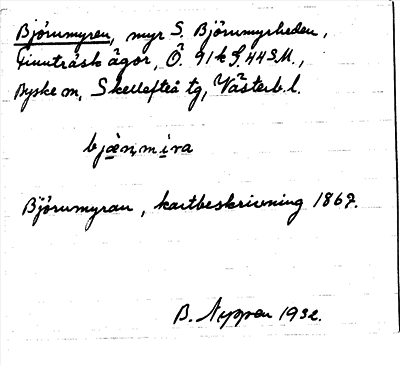 Björnmyren, myr S. Björnmyrheden,
Finnträsk ägor, Ö. 91 k S. 44 S.M.,
Byske sn, Skellefteå tg, Västerb. l.
bjæ̀n,mìra
Björnmyran, kartbeskrivning 1867.
B. Nyppen 1932.